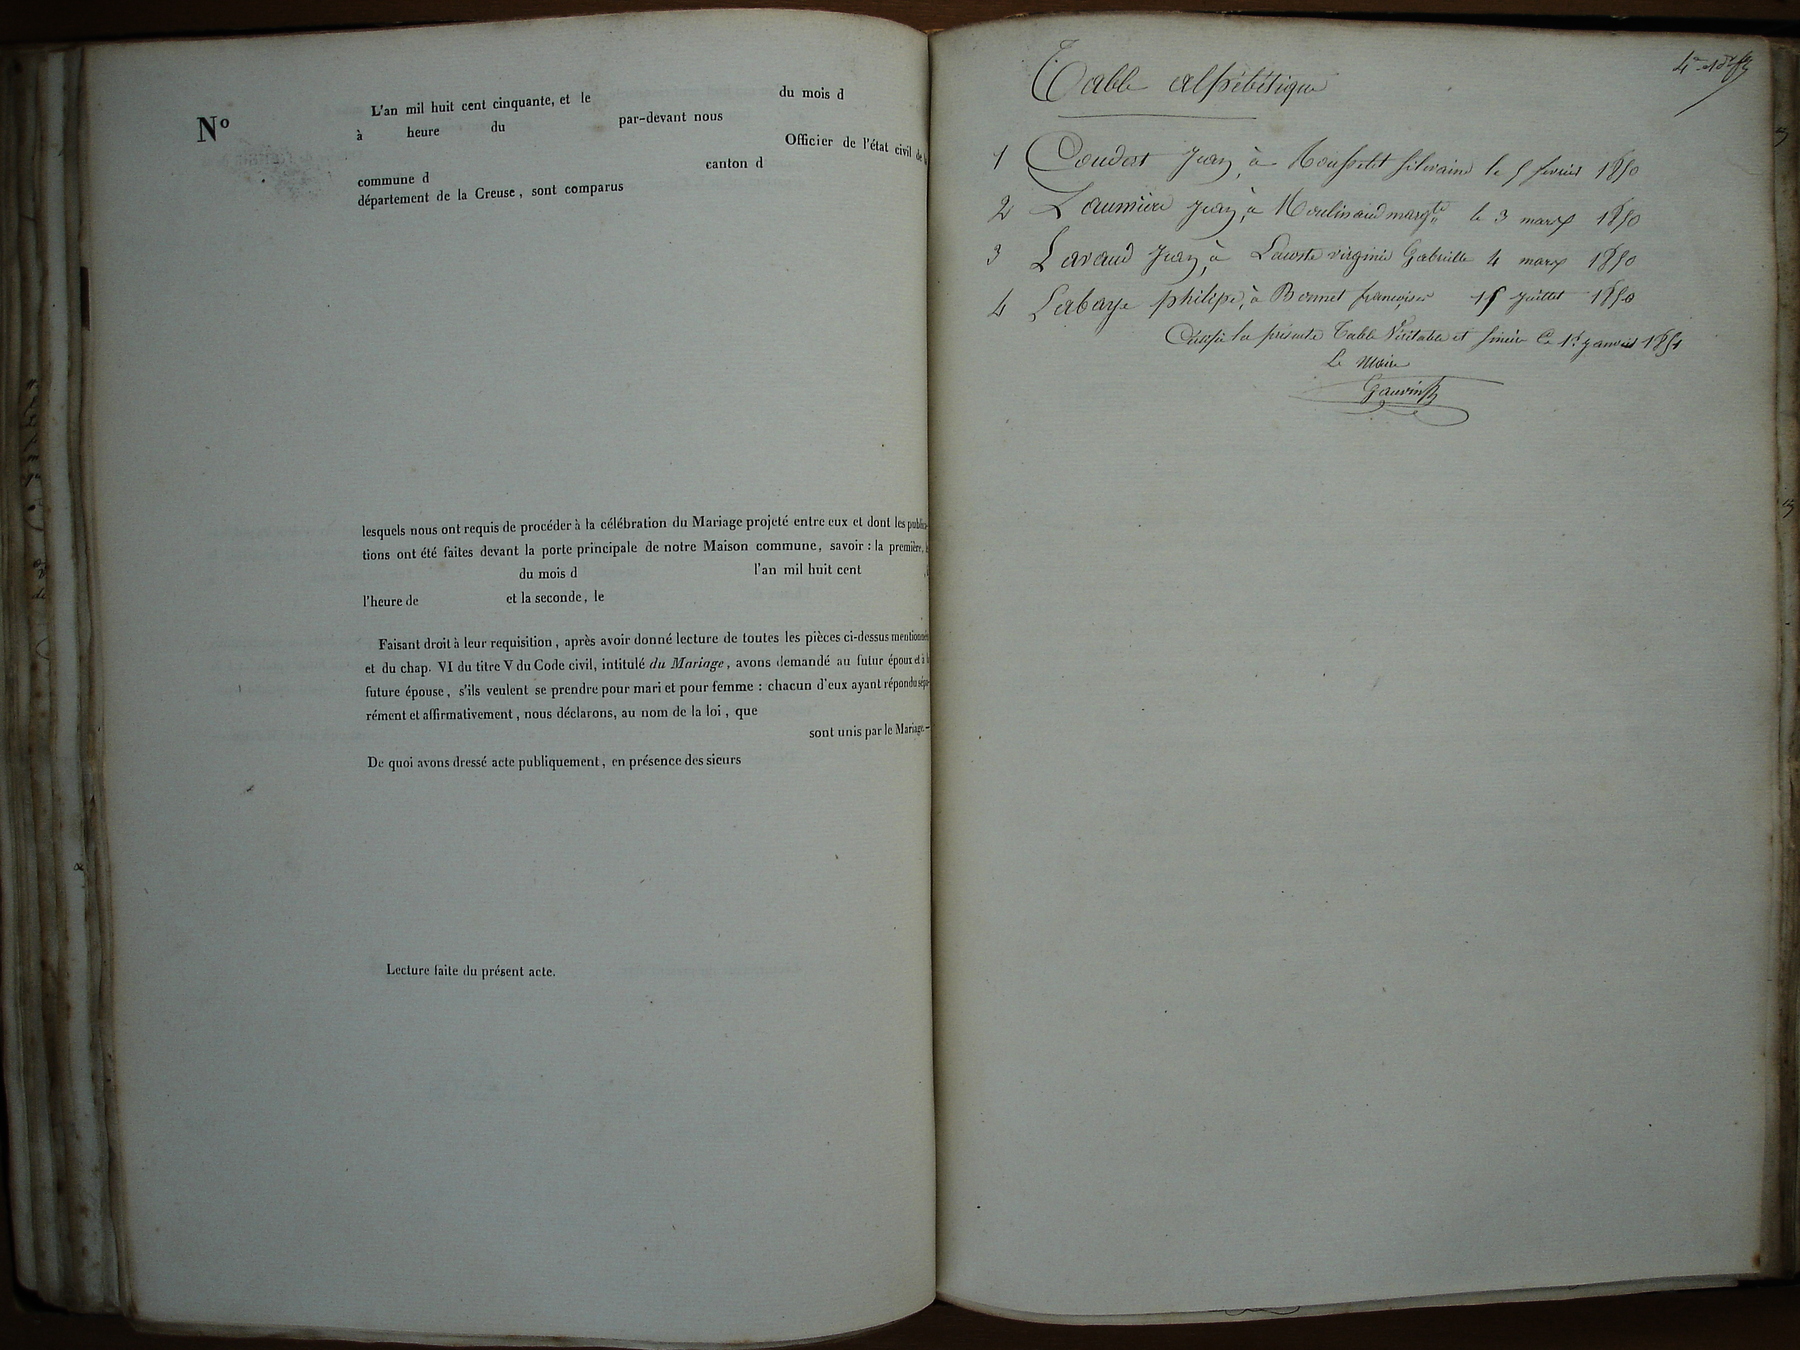 N°
L'an mil huit cent cinquante, et le du mois d
à heure du par-devant nous
Officier de l'état civil de la
commune d canton d
département de la Creuse, sont comparus
lesquels nous ont requis de procéder à la célébration du Mariage projeté entre eux et dont les publica-
tions ont été faites devant la porte principale de notre Maison commune, savoir : la première, le
du mois d l'an mil huit cent , à
l'heure de et la seconde, le
Faisant droit à leur requisition, après avoir donné lecture de toutes les pièces ci-dessus mentionnées
et du chap. VI du titre V du Code civil, intitulé du Mariage, avons demandé au futur époux et à la
future épouse, s'ils veulent se prendre pour mari et pour femme : chacun d'eux ayant répondu sépa-
rément et affirmativement, nous déclarons, au nom de la loi, que
sont unis par le Mariage.—
De quoi avons dressé acte publiquement, en présence des sieurs
Lecture faite du présent acte.
Table alphébétique
1 Coudert Jean, à silvaine le 5 fevrier 1850
2 Laumiere Jean, à Moulinaud margte le 3 mars 1850
3 Lavaud Jean, à Lacoste virginie Gabrielle 4 mars 1850
4 Labaye philipe, à Bonnet françoise 15 juillet 1850
la présente Table Véritable et sincère Ce 1er janvier 1851
Le Maire